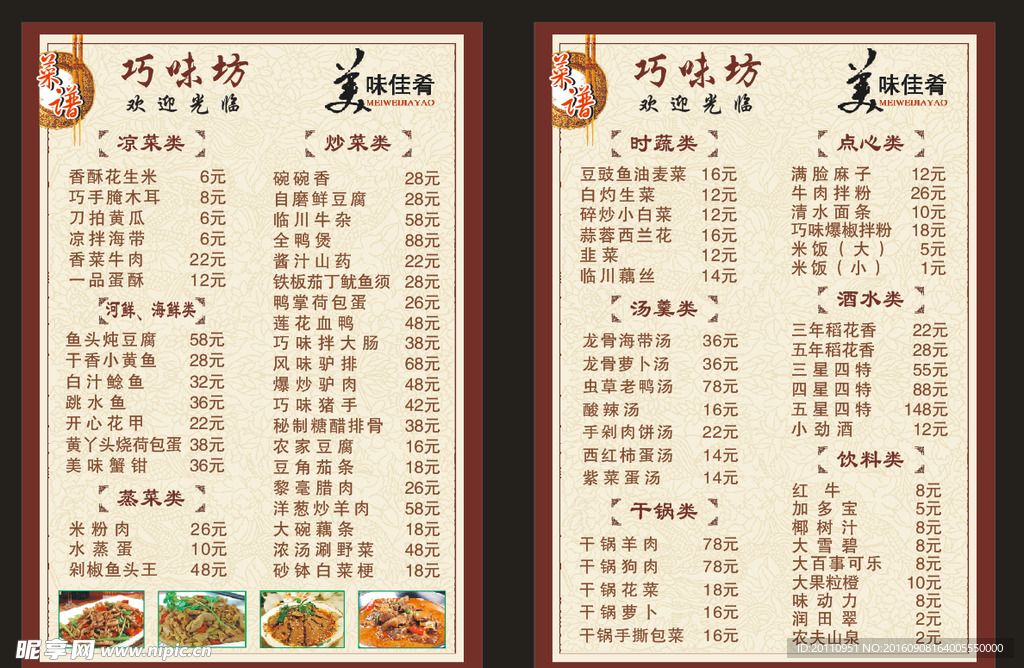 菜谱
巧味坊
欢迎光临
美味佳肴
MEIWEIJIAYAO
凉菜类
香酥花生米 6元
巧手腌木耳 8元
刀拍黄瓜 6元
凉拌海带 6元
香菜牛肉 22元
一品蛋酥 12元
河鲜、海鲜类
鱼头炖豆腐 58元
干香小黄鱼 28元
白汁鲶鱼 32元
跳水鱼 36元
开心花甲 22元
黄丫头烧荷包蛋 38元
美味蟹钳 36元
蒸菜类
米粉肉 26元
水蒸蛋 10元
剁椒鱼头王 48元
炒菜类
碗碗香 28元
自磨鲜豆腐 28元
临川牛杂 58元
全鸭煲 88元
酱汁山药 22元
铁板茄丁鱿鱼须 28元
鸭掌荷包蛋 26元
莲花血鸭 48元
巧味拌大肠 38元
风味驴排 68元
爆炒驴肉 48元
巧味猪手 42元
秘制糖醋排骨 38元
农家豆腐 16元
豆角茄条 18元
黎毫腊肉 26元
洋葱炒羊肉 58元
大碗藕条 18元
浓汤涮野菜 48元
砂钵白菜梗 18元
菜谱
巧味坊
欢迎光临
美味佳肴
MEIWEIJIAYAO
时蔬类
豆豉鱼油麦菜 16元
白灼生菜 12元
碎炒小白菜 12元
蒜蓉西兰花 16元
韭菜 12元
临川藕丝 14元
汤羹类
龙骨海带汤 36元
龙骨萝卜汤 36元
虫草老鸭汤 78元
酸辣汤 16元
手剁肉饼汤 22元
西红柿蛋汤 14元
紫菜蛋汤 14元
干锅类
干锅羊肉 78元
干锅狗肉 78元
干锅花菜 18元
干锅萝卜 16元
干锅手撕包菜 16元
点心类
满脸麻子 12元
牛肉拌粉 26元
清水面条 10元
巧味爆椒拌粉 18元
米饭（大） 5元
米饭（小） 1元
酒水类
三年稻花香 22元
五年稻花香 28元
三星四特 55元
四星四特 88元
五星四特 148元
小劲酒 12元
饮料类
红牛 8元
加多宝 5元
椰树汁 8元
大雪碧 8元
大百事可乐 8元
大果粒橙 10元
味动力 8元
润田翠 2元
农夫山泉 2元
昵享网 www.nipic.cn
ID:20110951 NO:20160908164005550000